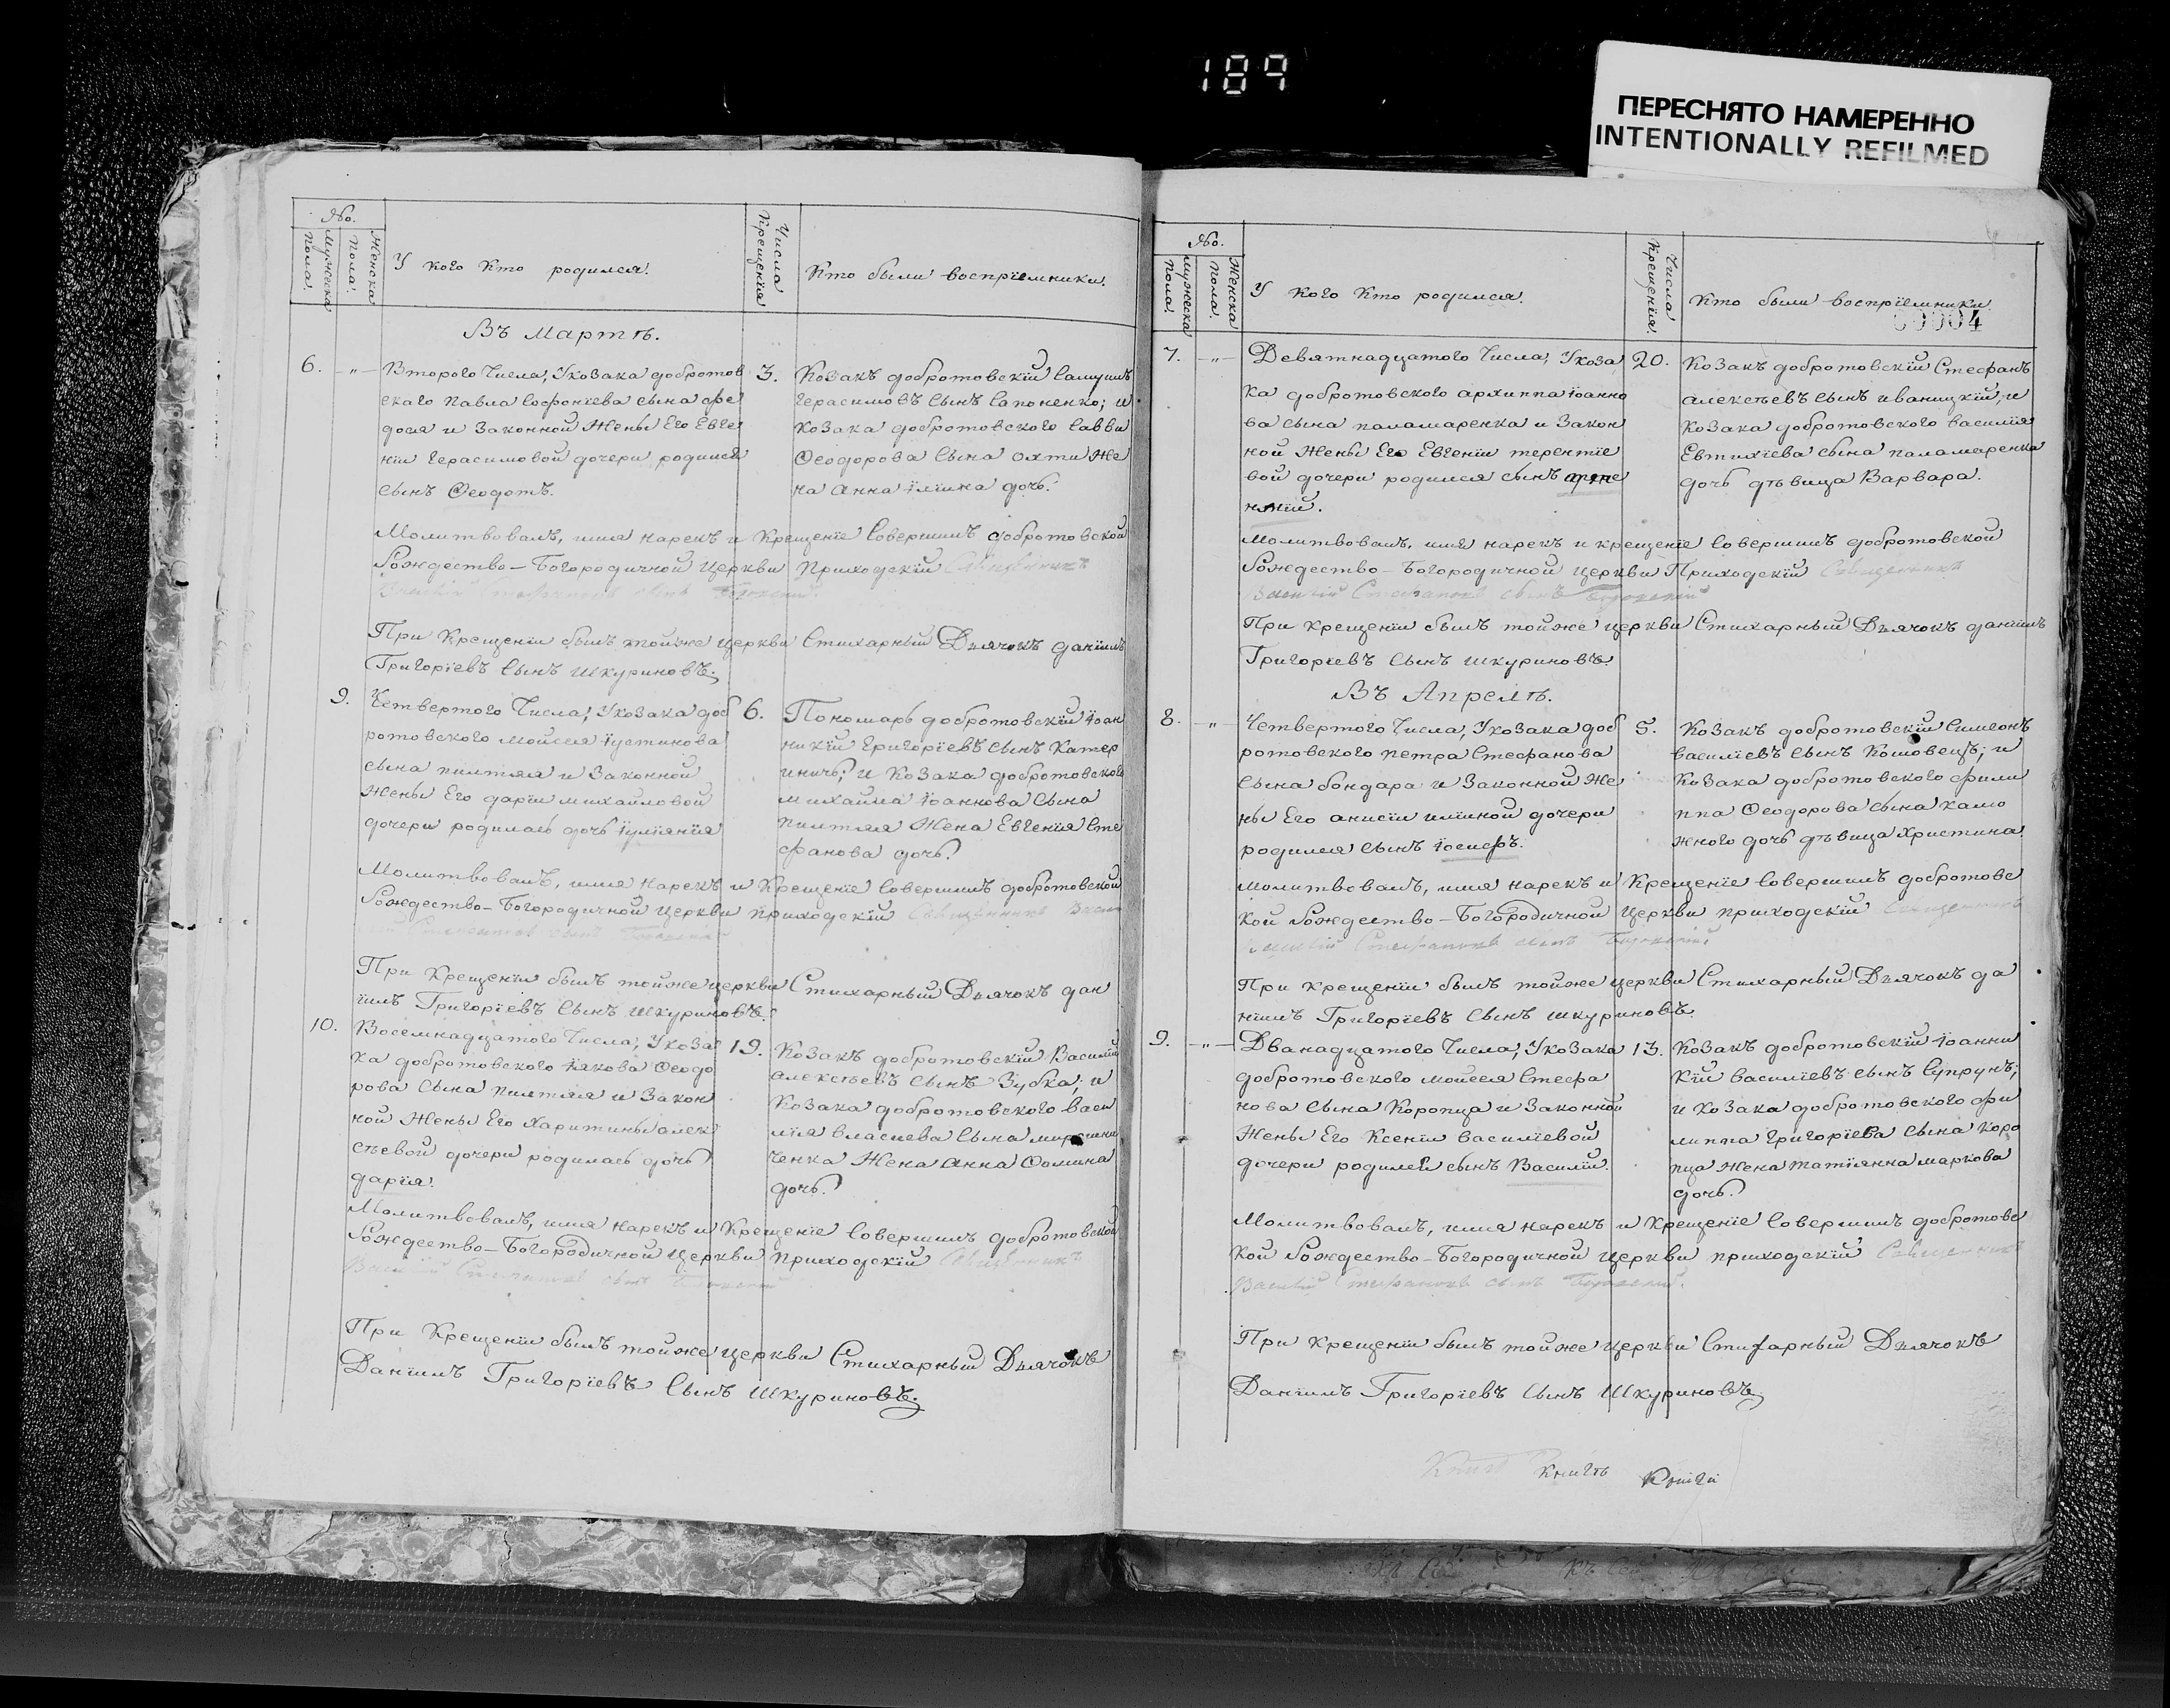 189
ПЕРЕСНЯТО НАМЕРЕННО
INTENTIONALLY REFILMED
No.
Мужеска пола.
Женска пола.
У кого кто родился.
Числа Крещенїя
Кто были воспрїемники.
Въ Мартѣ.
6. -"- Втораго Числа, У козака добротов
скаго Павла Софонїева сына фе
дося и Законной Жены Его Евге
нїи Герасимовой дочери родился
сынъ Ѳеодотъ.
3. Козакъ добротовскїй Самуилъ
Герасимовъ сынъ Сапоненко; и
козака добротовского Саввы
Ѳеодорова Сына Охти Же
на Анна Їлїина дочь.
Молитвовалъ, имя нарекъ и Крещенїе Совершилъ добротовской
Рождество-Богородичной Церкви Приходскїй Священникъ
Василїй Стефановъ сынъ
При Крещенїи былъ тойже церкви Стихарный Дьячокъ данїилъ
Григорїевъ Сынъ Шкуриновъ.
9. Четвертого Числа, У козака доб
ротовского Мойсея Їустинова
сына пилтяя и Законной
Жены Его дарїи михайловой
дочери родилась дочь Їулїянїя
6. Пономарь добротовскїй Їоан
никїй Григорїевъ сынъ Катер
иничъ; и Козака добротовского
михайла Їоаннова Сына
пилтяя Жена Евгенїя Сте
фанова дочь.
Молитвовалъ, имя нарекъ и Крещенїе Совершилъ добротовской
Рождество-Богородичной церкви приходскїй Священникъ Васи
лїй Стефановъ сынъ
При Крещенїи былъ тойже церкви Стихарный Дьячокъ дан
їилъ Григорїевъ Сынъ Шкуриновъ.
10. Восемнадцатого Числа, У коза
ка добротовского Їякова Ѳеодо
рова Сына пилтяя и Закон
ной Жены Его Харитины алек
сѣевой дочери родилась дочь
дарїя.
19. Козакъ добротовскїй Василїй
алексѣевъ сынъ Зубка; и
Козака добротовского васи
лїя власиева Сына мирошни
ченка Жена Анна Ѳомина
дочь.
Молитвовалъ, имя нарекъ и Крещенїе Совершилъ добротовской
Рождество-Богородичной Церкви приходскїй Священникъ
Василїй Стефановъ сынъ
При Крещенїи былъ тойже церкви Стихарный Дьячокъ
Данїилъ Григорїевъ Сынъ Шкуриновъ.
No.
Мужеска пола.
Женска пола.
У кого кто родился.
Числа Крещенїя.
Кто были воспрїемники
00004
7. -"- Девятнадцатого Числа, У коза
ка добротовского архиппа їоанно
ва сына паламаренка и Закон
ной Жены Его Евгенїи терентїе
вой дочери родился сынъ арте
мїй.
20. Козакъ добротовскїй Стефанъ
алексѣевъ сынъ иваницкїй, и
Козака добротовского василїя
Евтихїева сына паламаренка
дочь дѣвица Варвара.
Молитвовалъ, имя нарекъ и крещенїе Совершилъ добротовской
Рождество-Богородичной церкви Приходскїй Священникъ
Василїй Стефановъ сынъ
При крещенїи былъ тойже церкви Стихарный Дьячокъ данїилъ
Григорїевъ Сынъ Шкуриновъ.
Въ Апрелѣ.
8. -"- Четвертого Числа, У козака доб
ротовского петра Стефанова
Сына бондара и Законной Же
ны Его анисїи илїиной дочери
родился сынъ Їосифъ.
5. Козакъ добротовскїй Симеонъ
василїевъ Сынъ Кошовецъ; и
Козака добротовского фили
ппа Ѳеодорова сына камо
жного дочь дѣвица Христина.
Молитвовалъ, имя нарекъ и Крещенїе Совершилъ добротовс
кой Рождество-Богородичной церкви приходскїй Священникъ
Василїй Стефановъ сынъ
При Крещенїи былъ тойже церкви Стихарный Дьячокъ да
нїилъ Григорїевъ Сынъ Шкуриновъ.
9. -"- Дванадцатого Числа, У козака
добротовского мойсея Стефа
нова Сына Коропца и Законной
Жены Его Ксенїи василїевой
дочери родился сынъ Василїй.
13. Козакъ добротовскїй Їоанни
кїй василїевъ сынъ Супрунъ;
и козака добротовского фи
липпа Григорїева Сына коро
пца Жена татїянна маркова
дочь.
Молитвовалъ, имя нарекъ и Крещенїе Совершилъ добротовс
кой Рождество-Богородичной церкви приходскїй Священникъ
Василїй Стефановъ сынъ
При Крещенїи былъ тойже церкви Стихарный Дьячокъ
Данїилъ Григорїевъ Сынъ Шкуриновъ
Книгѣ Книги